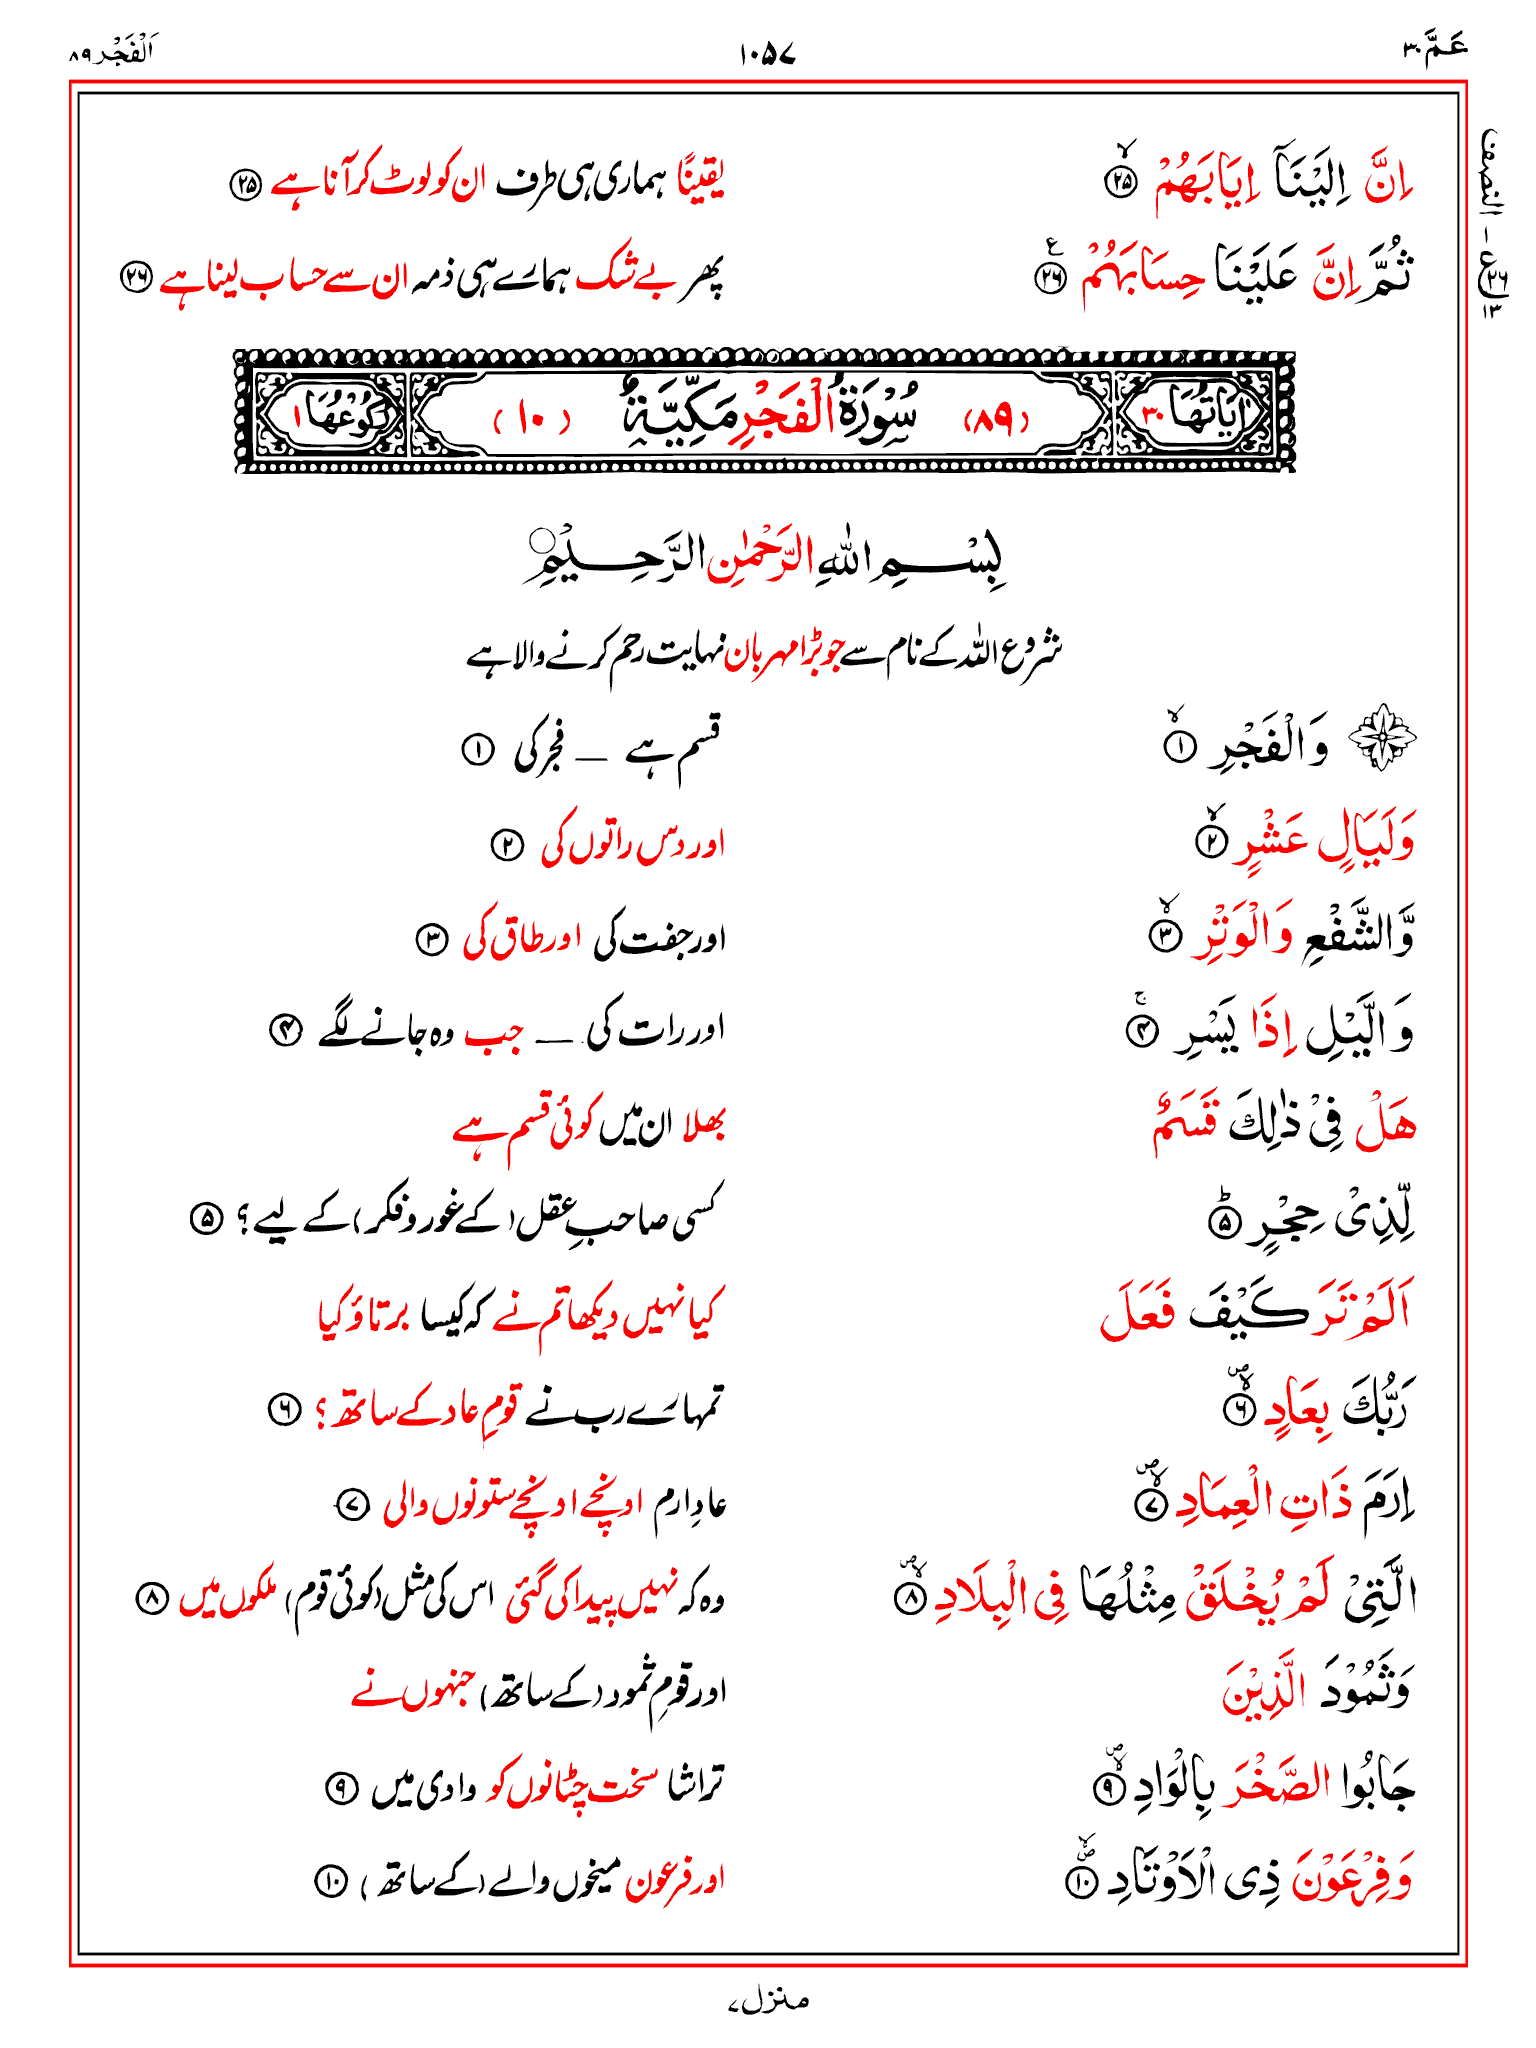 عَمَّ ٣٠ ١٠٥٧ اَلْفَجْر ٨٩
اِنَّ اِلَيْنَاۤ اِيَابَهُمْ ۙ﴿۲۵﴾ یقینًا ہماری ہی طرف ان کو لوٹ کر آنا ہے ﴿۲۵﴾
ثُمَّ اِنَّ عَلَيْنَا حِسَابَهُمْ ﴿۲۶﴾ ع پھر بے شک ہمارے ہی ذمہ ان سے حساب لینا ہے ﴿۲۶﴾
النصف
اٰيَاتُهَا ٣٠ (٨٩) سُوْرَةُ الْفَجْرِ مَكِّيَّةٌ (١٠) رُكُوْعُهَا ١
بِسْمِ اللّٰهِ الرَّحْمٰنِ الرَّحِيْمِ
شروع اللہ کے نام سے جو بڑا مہربان نہایت رحم کرنے والا ہے
وَالْفَجْرِ ۙ﴿۱﴾ قسم ہے — فجر کی ﴿۱﴾
وَلَيَالٍ عَشْرٍ ۙ﴿۲﴾ اور دس راتوں کی ﴿۲﴾
وَّالشَّفْعِ وَالْوَتْرِ ۙ﴿۳﴾ اور جفت کی اور طاق کی ﴿۳﴾
وَالَّيْلِ اِذَا يَسْرِ ۚ﴿۴﴾ اور رات کی — جب وہ جانے لگے ﴿۴﴾
هَلْ فِيْ ذٰلِكَ قَسَمٌ بھلا ان میں کوئی قسم ہے
لِّذِيْ حِجْرٍ ؕ﴿۵﴾ کسی صاحبِ عقل (کے غور و فکر) کے لیے؟ ﴿۵﴾
اَلَمْ تَرَ كَيْفَ فَعَلَ کیا نہیں دیکھا تم نے کہ کیسا برتاؤ کیا
رَبُّكَ بِعَادٍ ۪ۙ﴿۶﴾ تمہارے رب نے قومِ عاد کے ساتھ؟ ﴿۶﴾
اِرَمَ ذَاتِ الْعِمَادِ ۪ۙ﴿۷﴾ عادِ ارم اونچے اونچے ستونوں والی ﴿۷﴾
الَّتِيْ لَمْ يُخْلَقْ مِثْلُهَا فِي الْبِلَادِ ۪ۙ﴿۸﴾ وہ کہ نہیں پیدا کی گئی اس کی مثل (کوئی قوم) ملکوں میں ﴿۸﴾
وَثَمُوْدَ الَّذِيْنَ اور قومِ ثمود (کے ساتھ) جنہوں نے
جَابُوا الصَّخْرَ بِالْوَادِ ۪ۙ﴿۹﴾ تراشا سخت چٹانوں کو وادی میں ﴿۹﴾
وَفِرْعَوْنَ ذِي الْاَوْتَادِ ۪ۙ﴿۱۰﴾ اور فرعون میخوں والے (کے ساتھ) ﴿۱۰﴾
منزل ٧